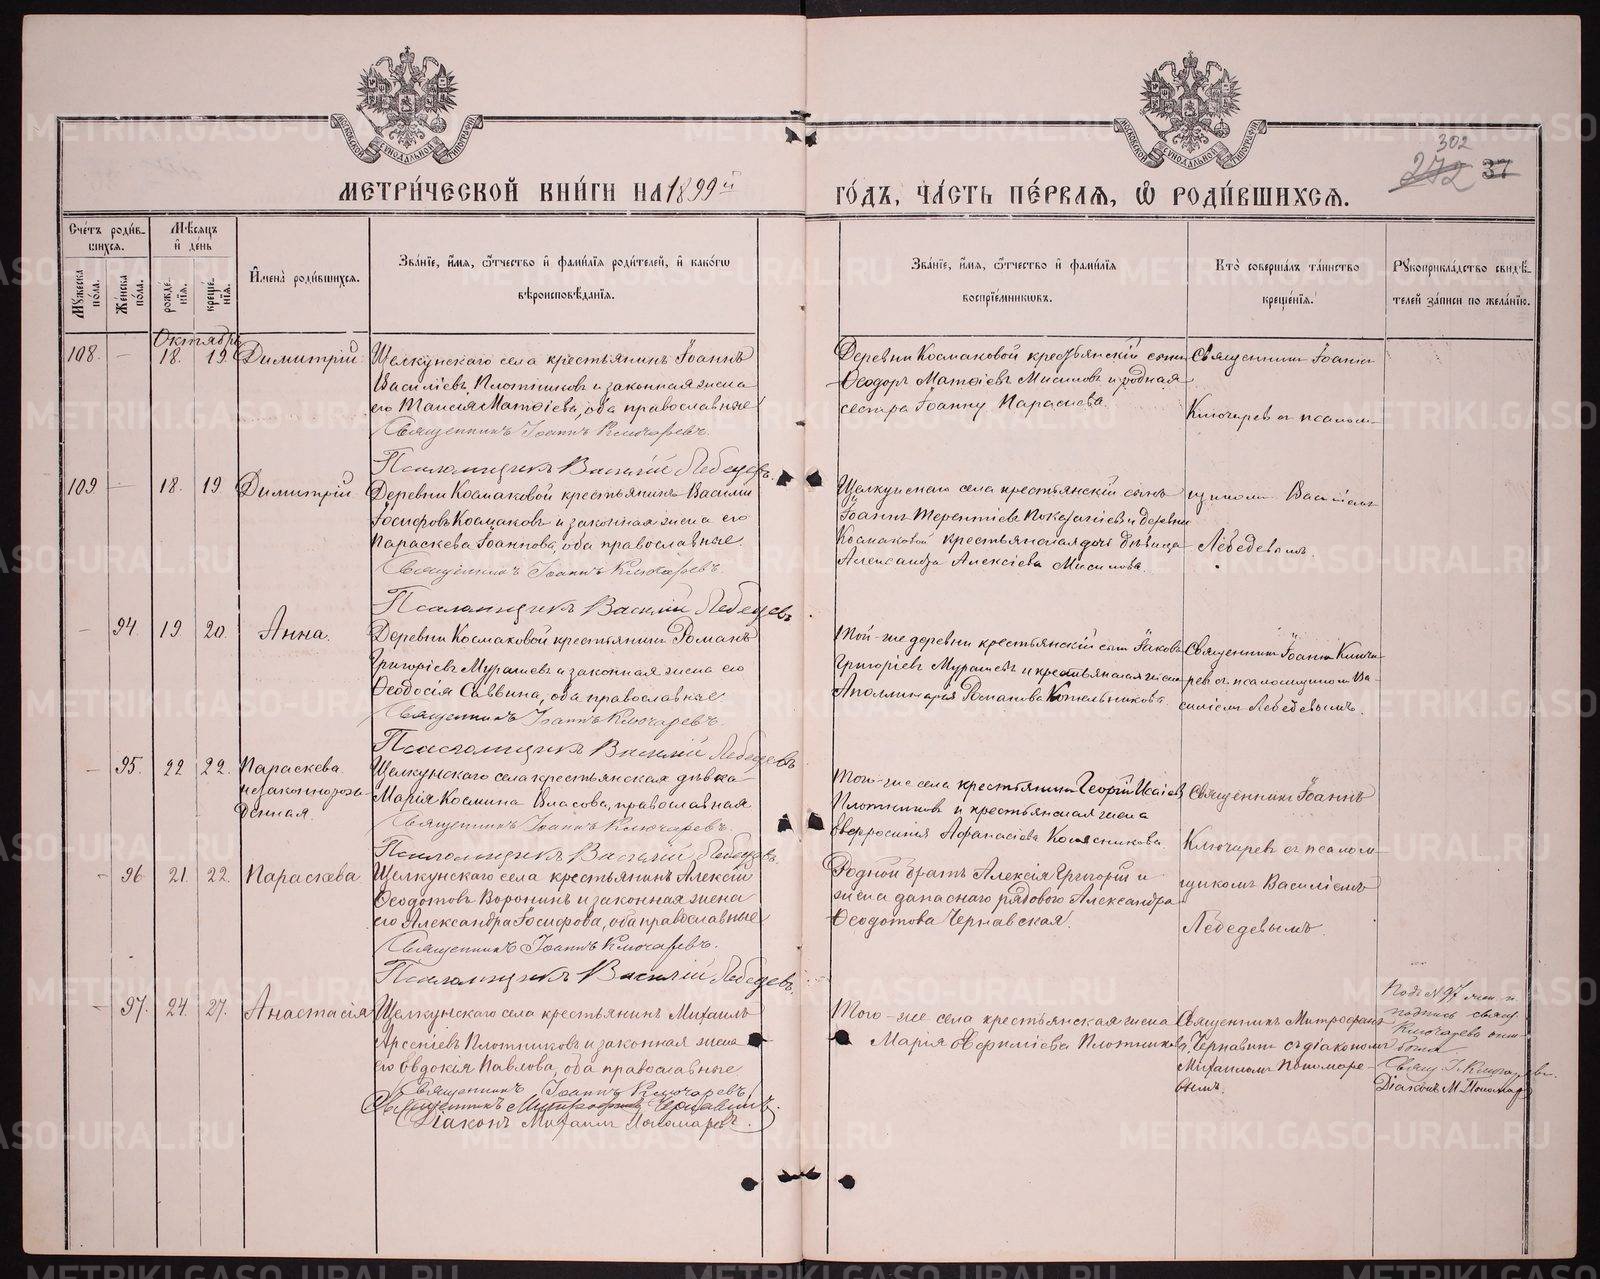 МЕТРИЧЕСКОЙ КНИГИ НА 1899й
ГОДЪ, ЧАСТЬ ПЕРВАЯ, Ѡ РОДИВШИХСЯ.
302
272 37
Счетъ родившихся.
Мужеска пола.
Женска пола.
Мѣсяцъ и день
рожденія.
крещенія.
Имена родившихся.
Званіе, имя, ѿчество и фамилія родителей, и какогѡ
вѣроисповѣданія.
Званіе, имя, ѿчество и фамилія
воспріемникѡвъ.
Кто совершалъ таинство
крещенія.
Рукоприкладство свидѣ-
телей записи по желанію.
Октябрь
108. — 18. 19. Димитрій
Щелкунскаго села крестьянинъ Іоаннъ
Василіевъ Плотниковъ и законная жена
его Таисія Матѳіева, оба православные
Священникъ Іоаннъ Ключаревъ.
Псаломщикъ Василій Лебедевъ.
Деревни Космаковой крестьянскій сынъ
Ѳеодоръ Матѳіевъ Мисиловъ и родная
сестра Іоанну Параскева.
Священникъ Іоаннъ
Ключаревъ съ псалом-
109 — 18. 19. Димитрій
Деревни Космаковой крестьянинъ Василій
Іосифовъ Космаковъ и законная жена его
Параскева Іоаннова, оба православные
Священникъ Іоаннъ Ключаревъ.
Псаломщикъ Василій Лебедевъ
Щелкунскаго села крестьянскій сынъ
Іоаннъ Терентіевъ и деревни
Космаковой крестьянская дочь дѣвица
Александра Алексіева Мисилова.
щикомъ Василіемъ
Лебедевымъ.
— 94. 19. 20. Анна.
Деревни Космаковой крестьянинъ Романъ
Григоріевъ Мурашевъ и законная жена его
Ѳеодосія Саввина, оба православные.
Священникъ Іоаннъ Ключаревъ.
Псаломщикъ Василій Лебедевъ
Той-же деревни крестьянскій сынъ Іаковъ
Григоріевъ Мурашевъ и крестьянская жена
Аполлинарія Романова Котельникова.
Священникъ Іоаннъ Ключа-
ревъ съ псаломщикомъ Ва-
силіемъ Лебедевымъ.
— 95. 22 22. Параскева
незаконнорож-
денная.
Щелкунскаго села крестьянская дѣвка
Марія Космина Власова, православная
Священникъ Іоаннъ Ключаревъ.
Псаломщикъ Василій Лебедевъ.
Того-же села крестьянинъ Георгій Исаіевъ
Плотниковъ и крестьянская жена
Евфросинія Афанасіева Колясникова.
Священникъ Іоаннъ
Ключаревъ съ псалом-
— 96 21. 22. Параскева
Щелкунскаго села крестьянинъ Алексій
Ѳеодотовъ Воронинъ и законная жена
его Александра Іосифова, оба православные
Священникъ Іоаннъ Ключаревъ.
Псаломщикъ Василій Лебедевъ.
Родной братъ Алексія Григорій и
жена запаснаго рядового Александра
Ѳеодотова Чернавская.
щикомъ Василіемъ
Лебедевымъ.
— 97. 24. 27. Анастасія
Щелкунскаго села крестьянинъ Михаилъ
Арсеніевъ Плотниковъ и законная жена
его Евдокія Павлова, оба православные
Священникъ Іоаннъ Ключаревъ
Священникъ Митрофанъ Чернавинъ.
Діаконъ Михаилъ Пономаревъ.
Того-же села крестьянская жена
Марія Евфиміева Плотникова.
Священникъ Митрофанъ
Чернавинъ съ діакономъ
Михаиломъ Пономаре-
вымъ.
Подъ №97
подпись свящ.
Ключарева
Свящ. І. Ключаревъ.
Діаконъ М. Пономар
METRIKI.GASO-URAL.RU